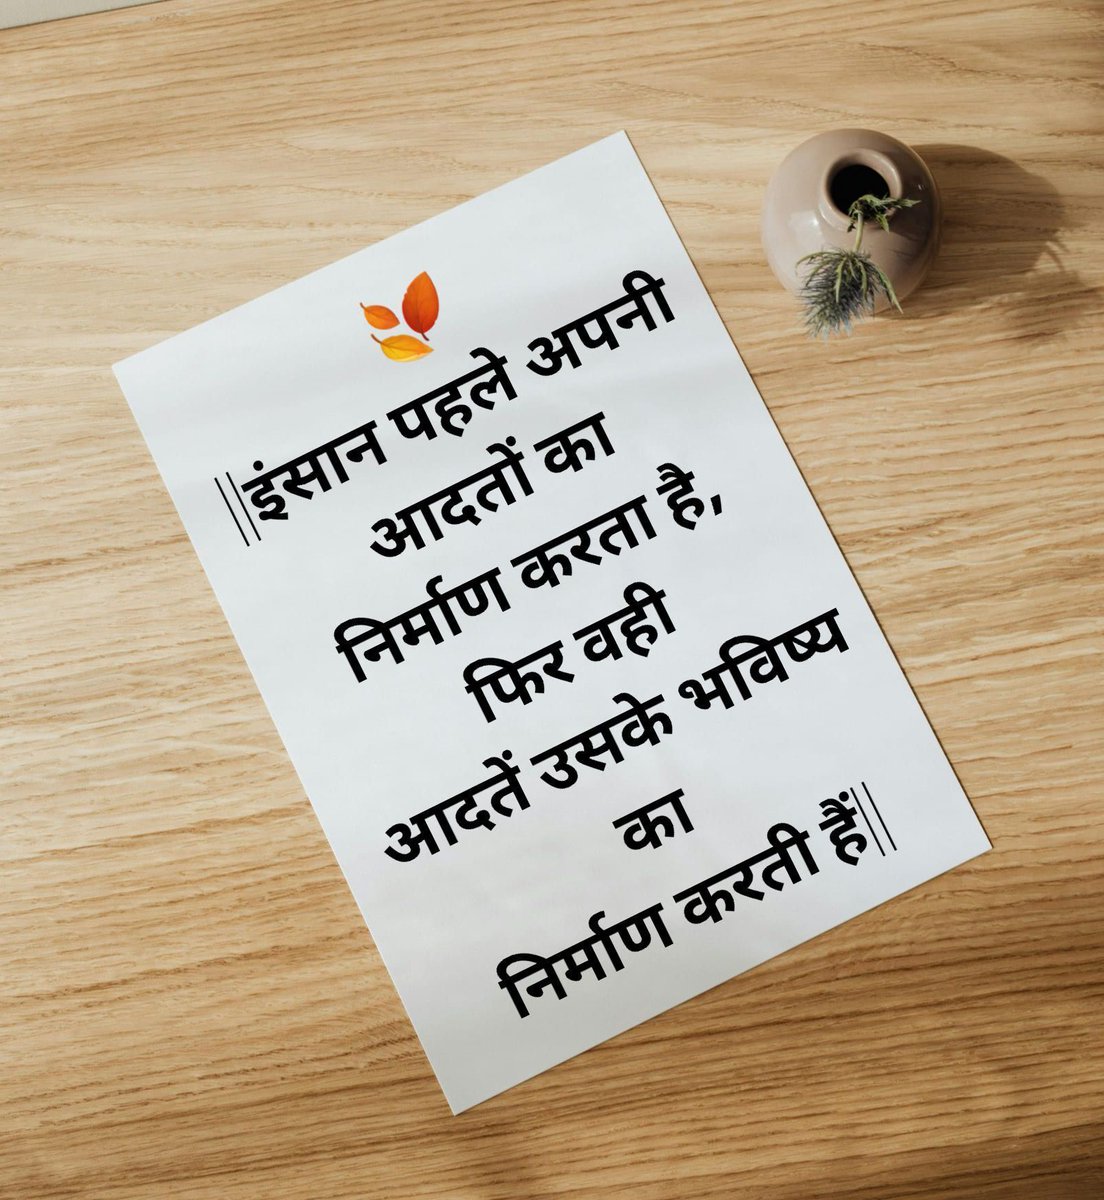 ||इंसान पहले अपनी
आदतों का
निर्माण करता है,
फिर वही
आदतें उसके भविष्य
का
निर्माण करती हैं||